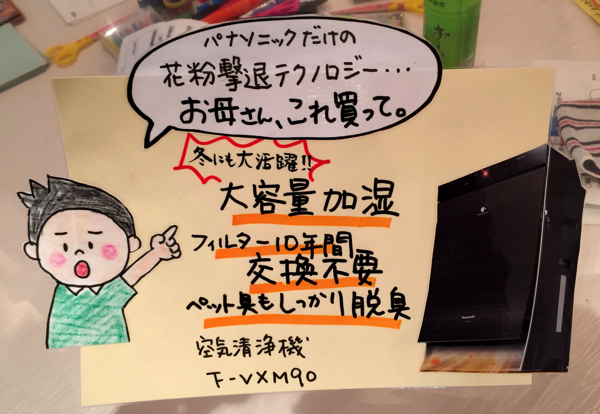 パナソニックだけの
花粉撃退テクノロジー・・・
お母さん、これ買って。
冬にも大活躍!!
大容量加湿
フィルター10年間
交換不要
ペット臭もしっかり脱臭
空気清浄機
F-VXM90
Panasonic